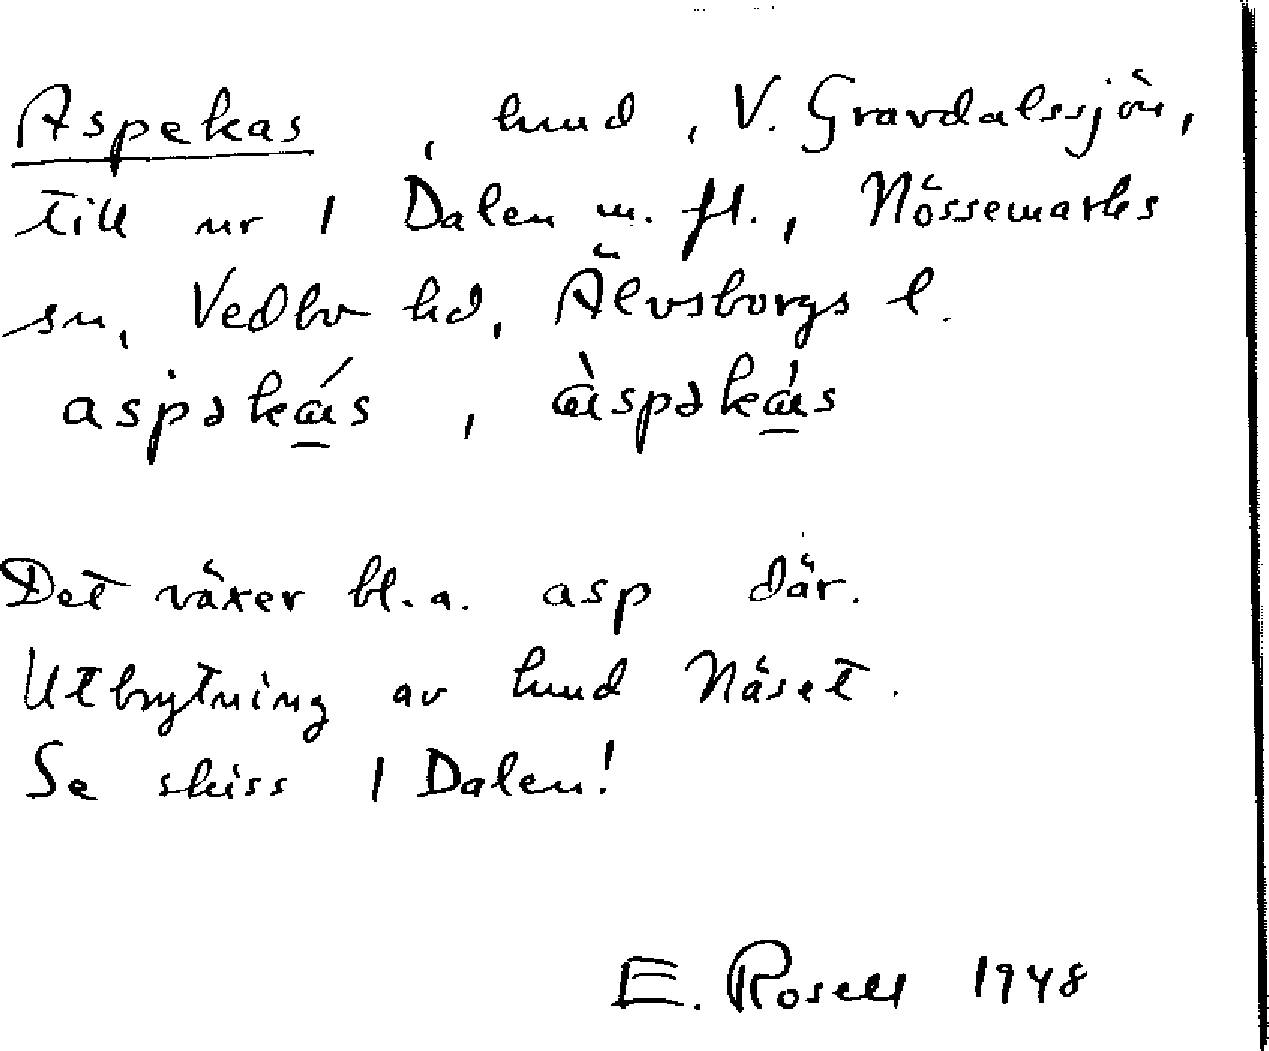 Aspekas, hmd, V. Gravdalssjön,
till nr 1 Dalen m. fl., Nössemarks
sn, Vedbo hd, Älvsborgs l.
aspəkás, àspəkás
Det växer bl. a. asp där.
Utbrytning av hmd Näset.
Se skiss 1 Dalen!
E. Rosell 1948